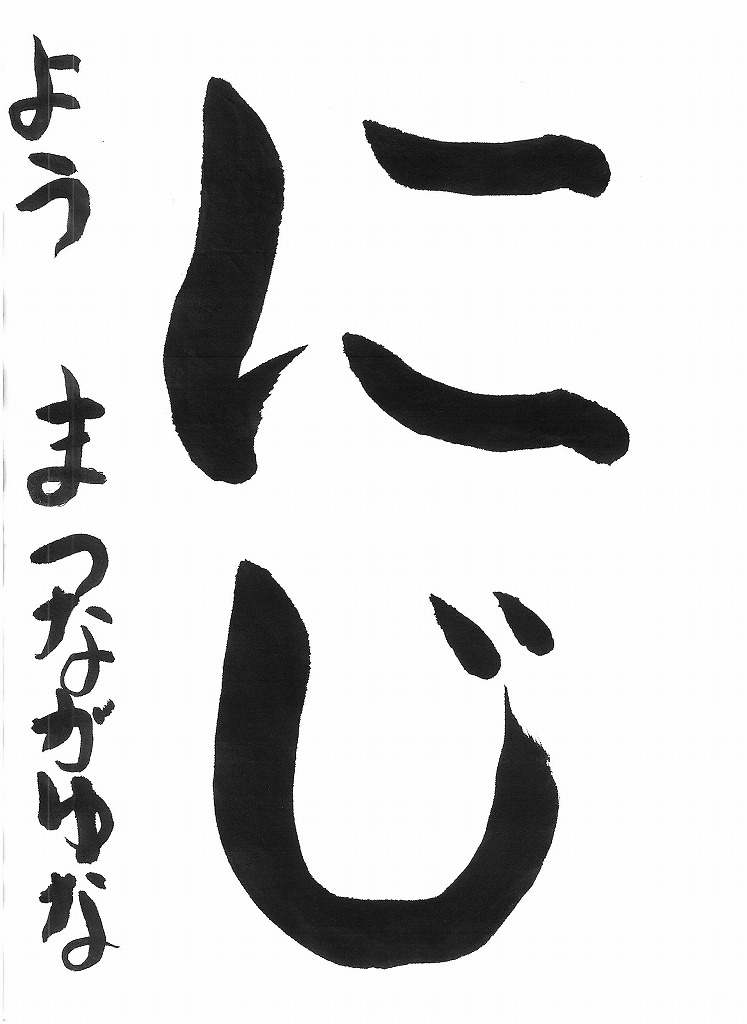 にじ
よう まつながゆな